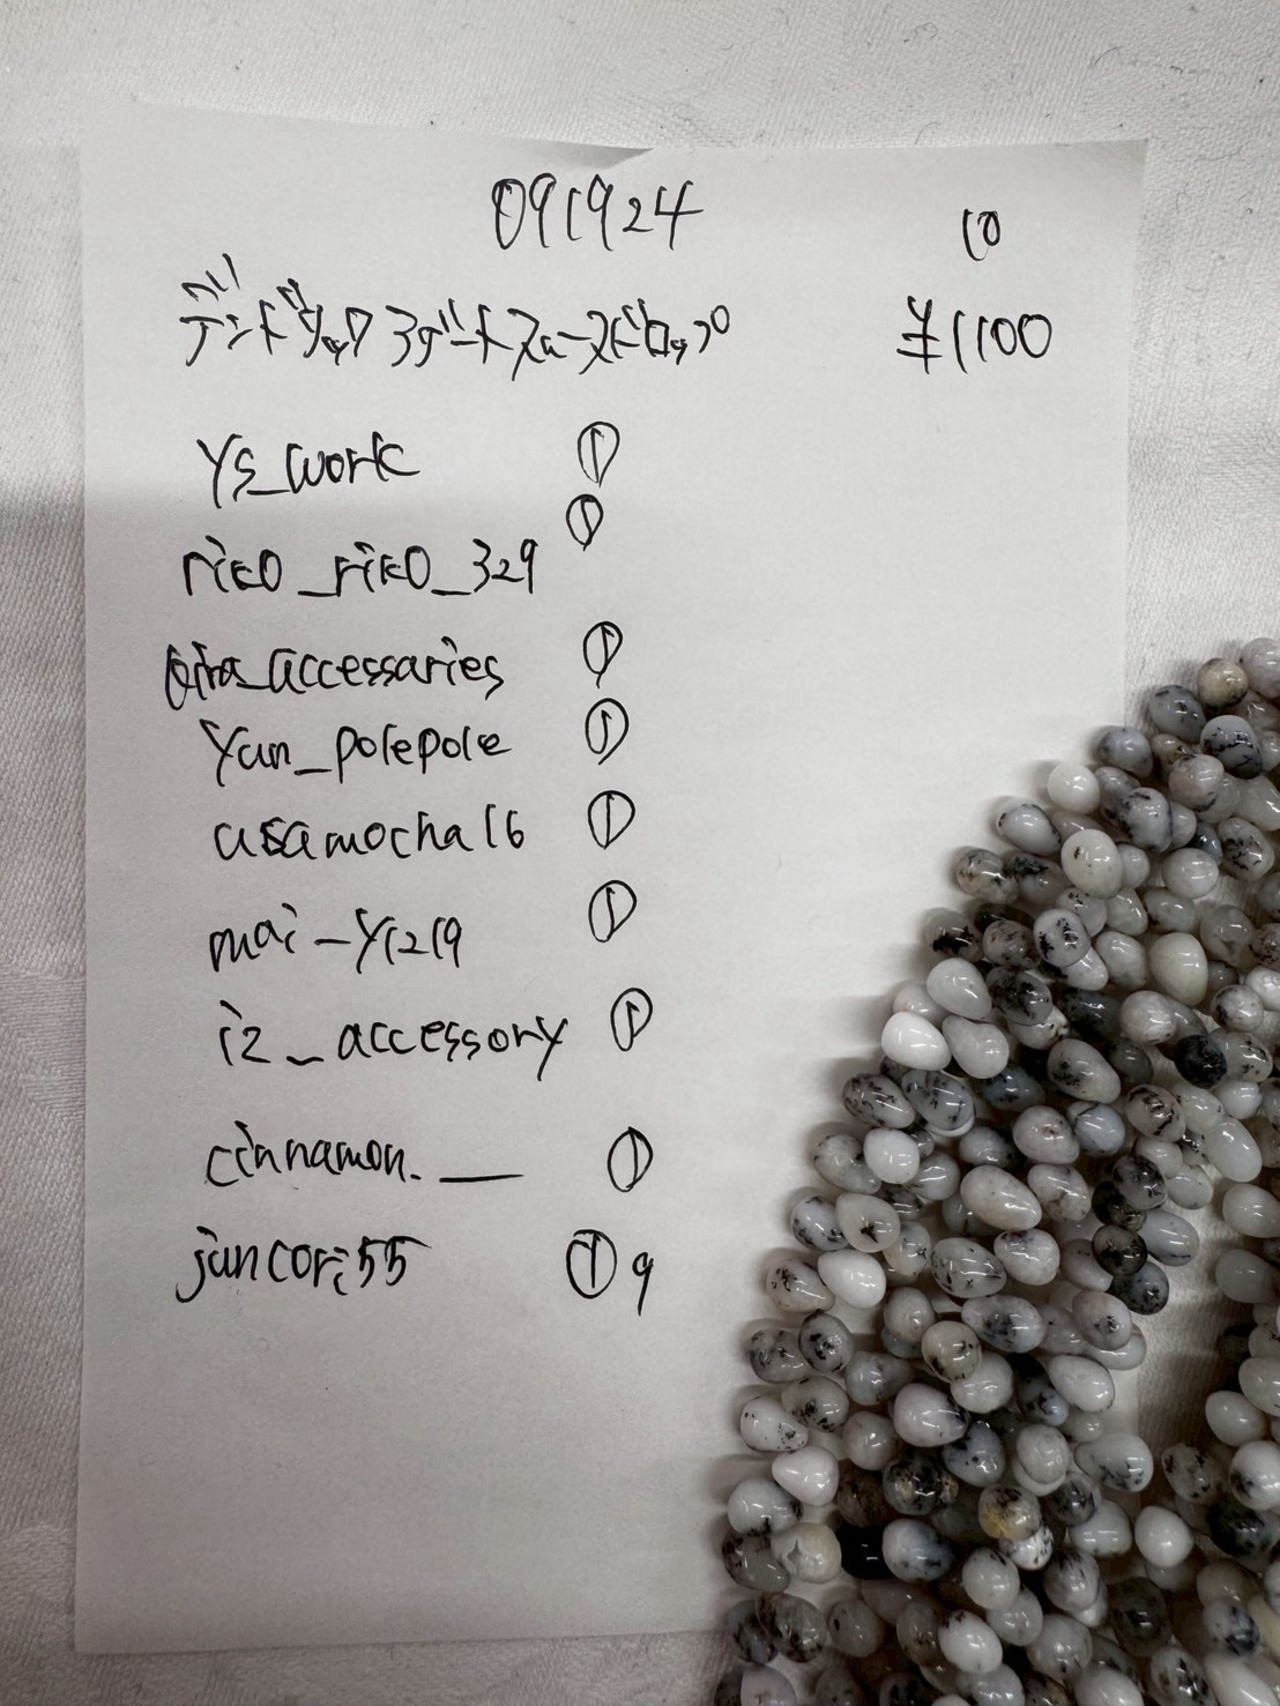 091924
10
デンドリック アゲート スムースドロップ
¥1100
ys_work ①
riko_riko_329 ①
accessaries ①
yun_polepole ①
asamocha16 ①
mai-y1219 ①
iz_accessory ①
cinnamon.__ ①
juncori55 ① 9